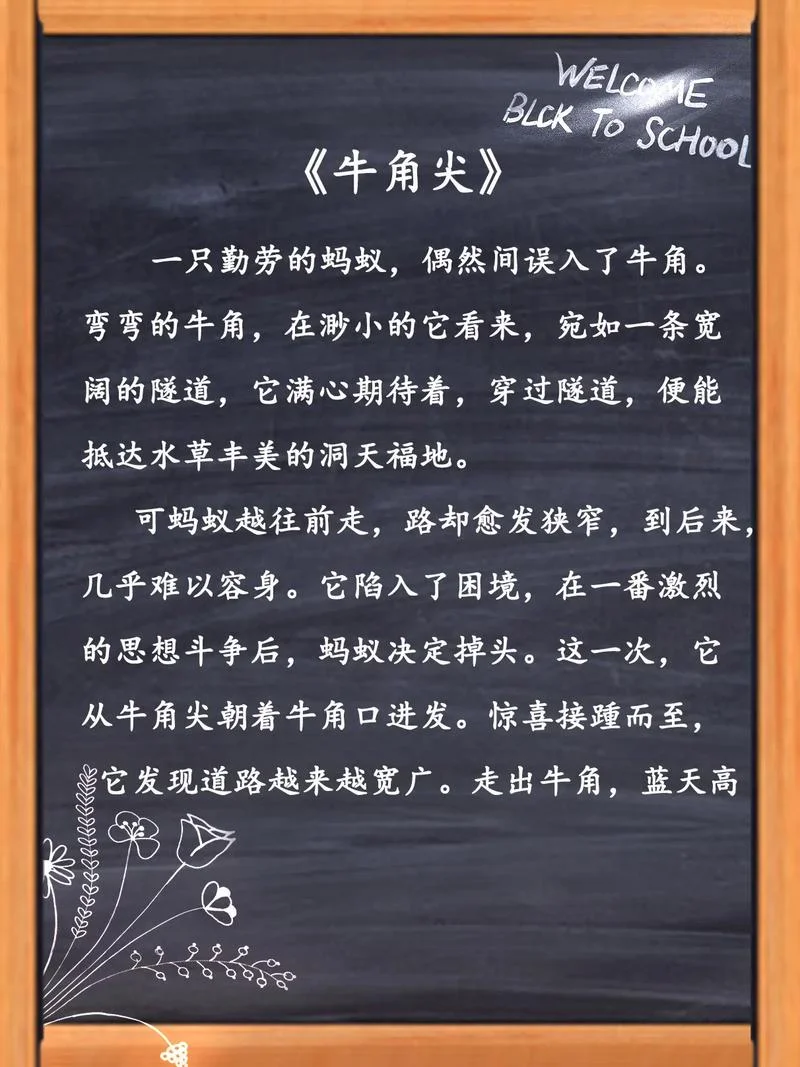 WELCOME
BLCK TO SCHOOL
《牛角尖》
一只勤劳的蚂蚁，偶然间误入了牛角。
弯弯的牛角，在渺小的它看来，宛如一条宽
阔的隧道，它满心期待着，穿过隧道，便能
抵达水草丰美的洞天福地。
可蚂蚁越往前走，路却愈发狭窄，到后来，
几乎难以容身。它陷入了困境，在一番激烈
的思想斗争后，蚂蚁决定掉头。这一次，它
从牛角尖朝着牛角口进发。惊喜接踵而至，
它发现道路越来越宽广。走出牛角，蓝天高